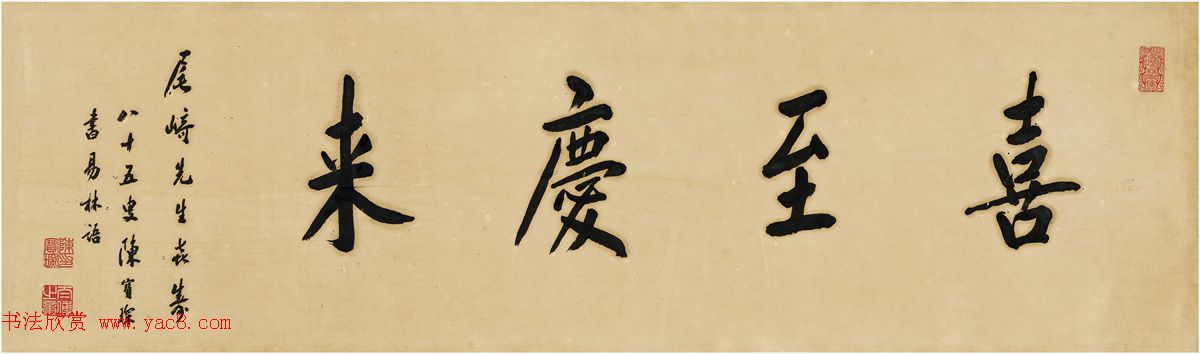 喜至慶来
尾崎先生㐂壽
八十五叟陳寳琛
書易林語
书法欣赏 www.yac8.com